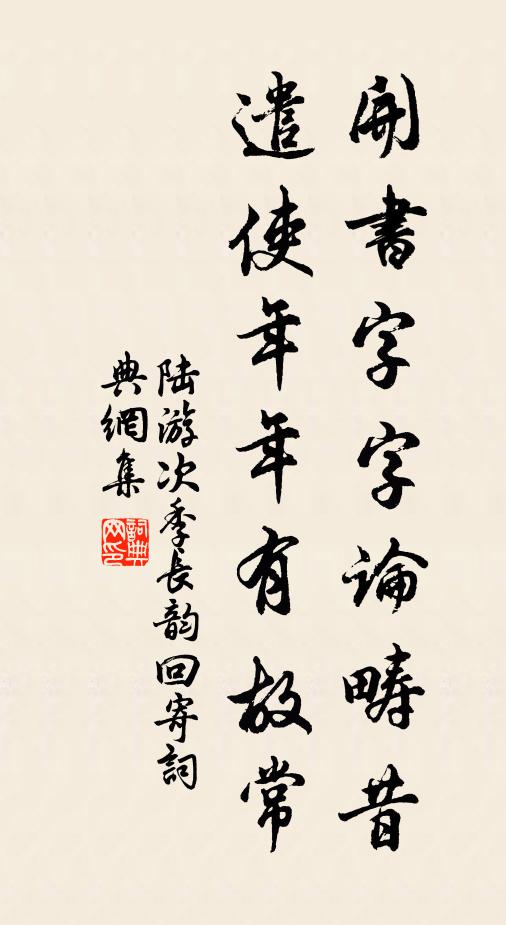 開書字字論疇昔
遣使年年有故常
陆游次季長韵回寄詞
典網集
詞典网印